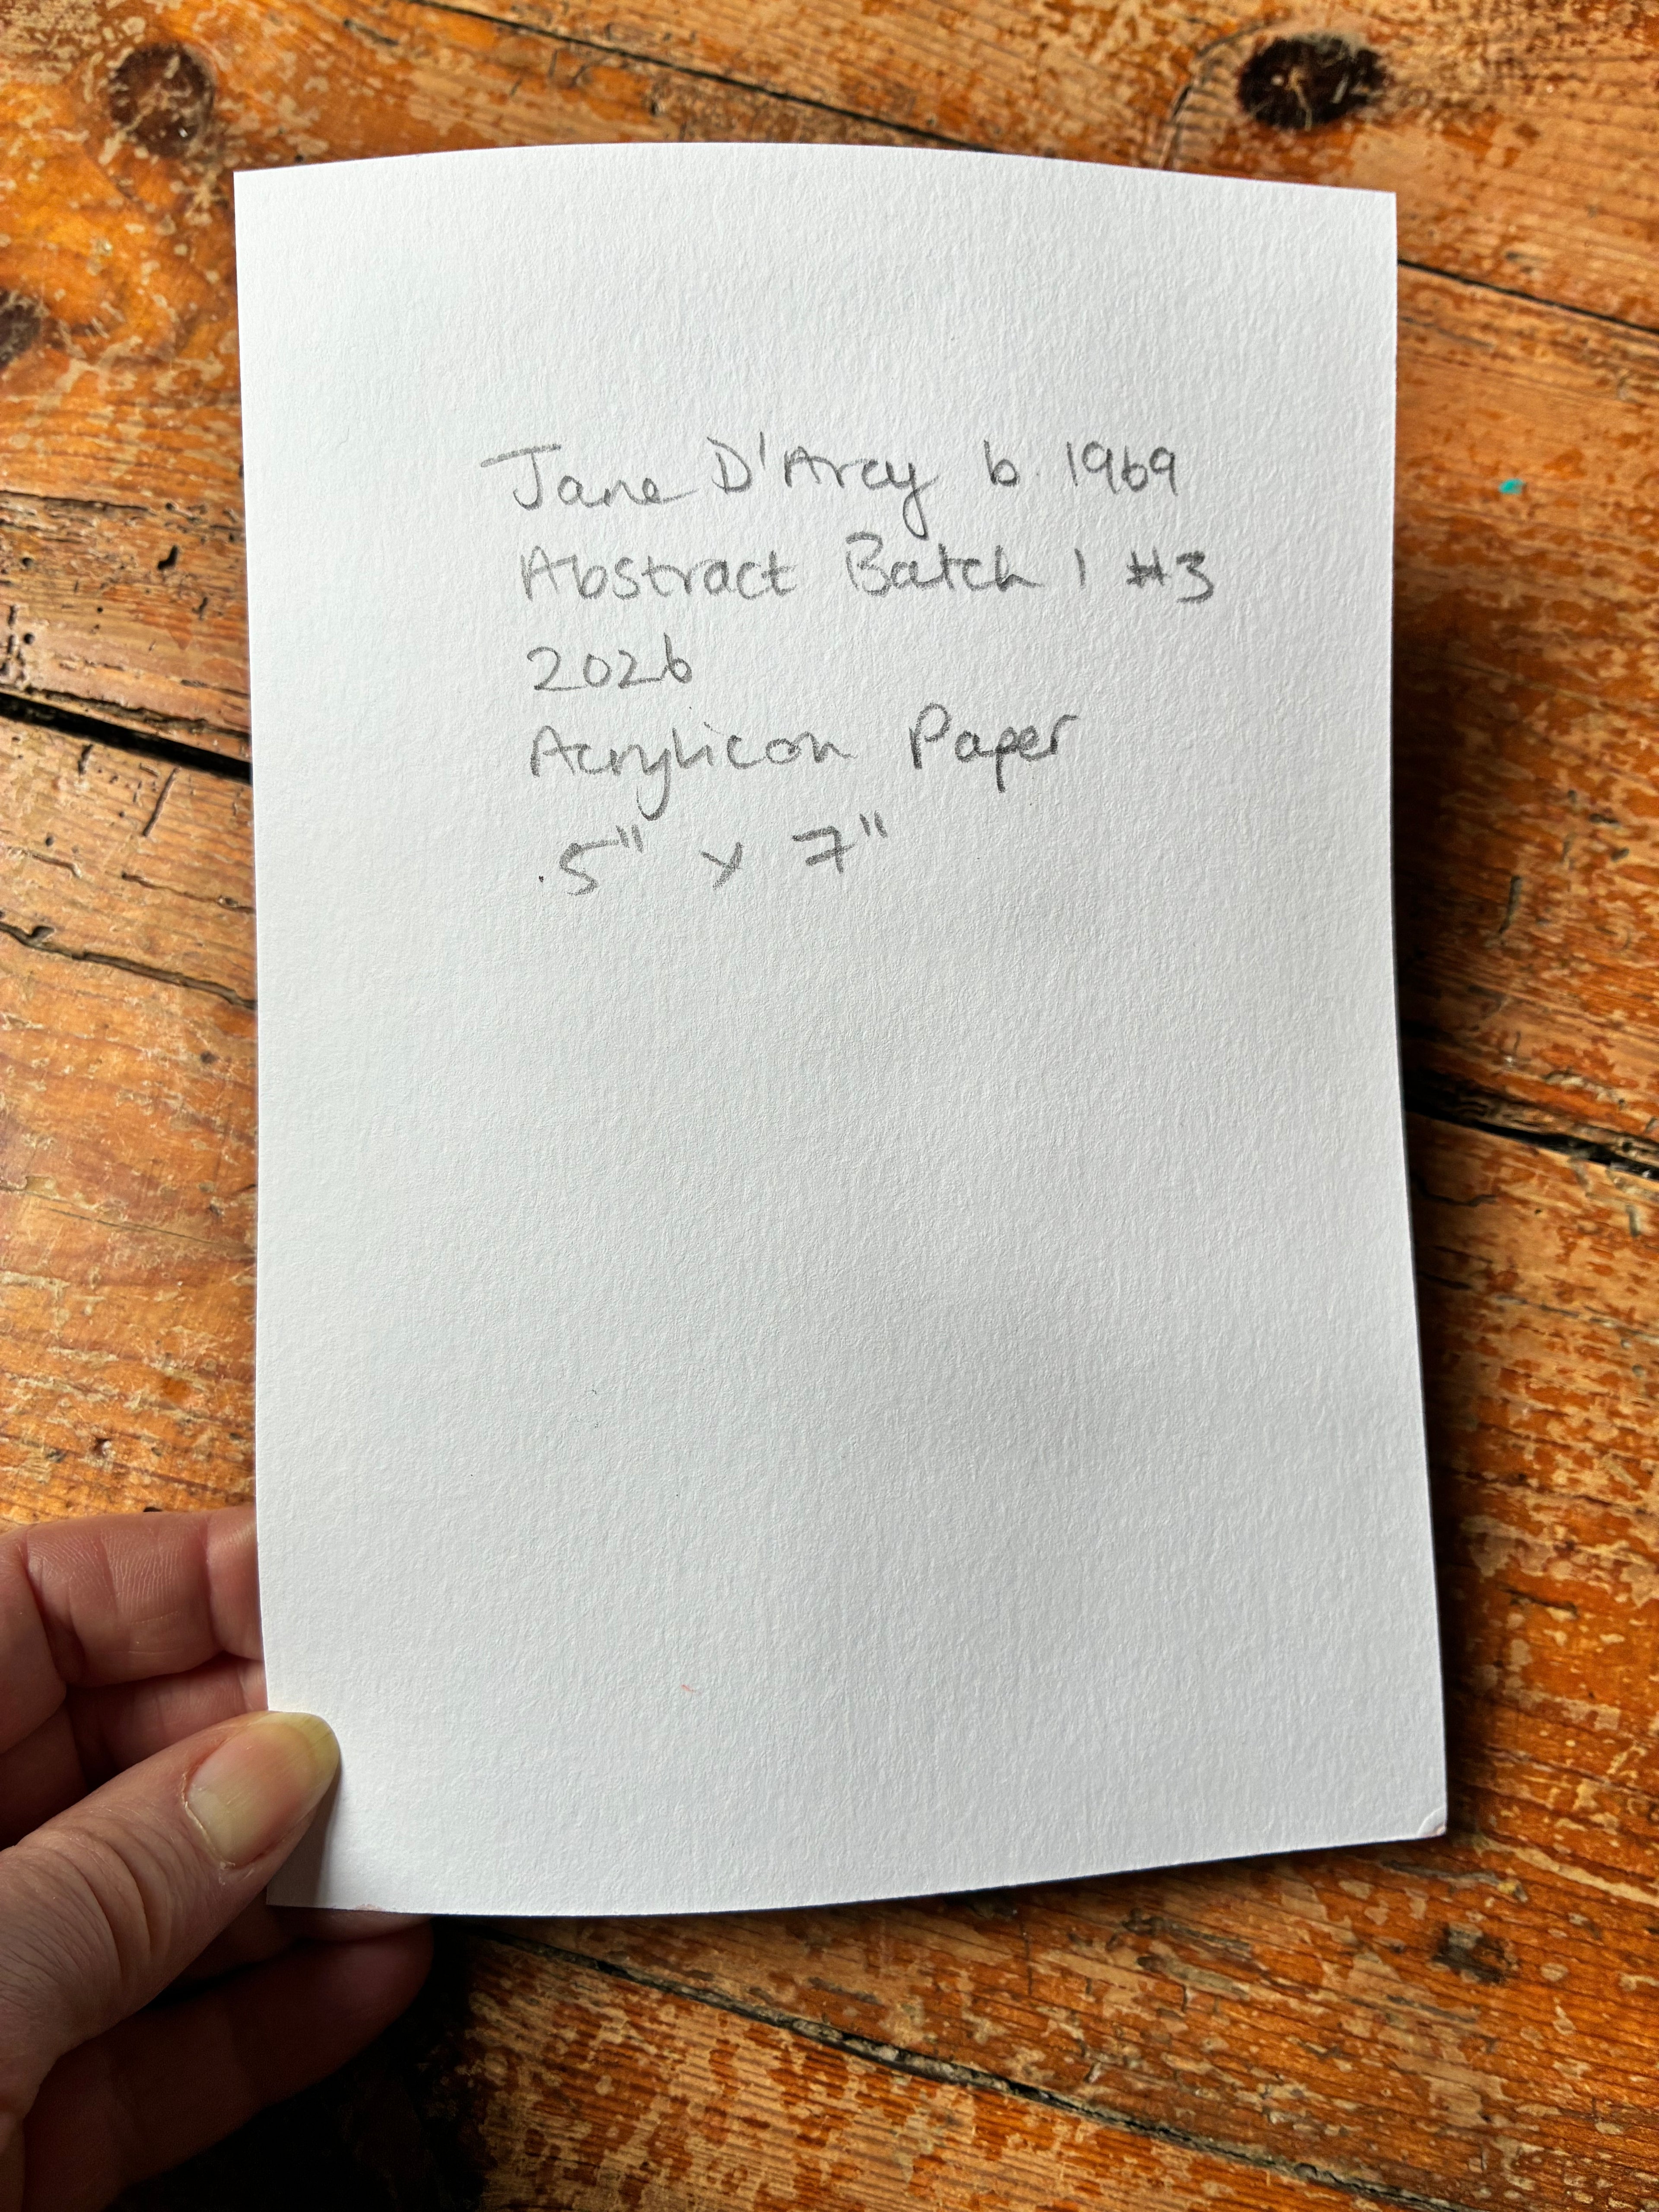 Jane D'Arcy b. 1969
Abstract Batch 1 #3
2026
Acrylic on Paper
5" x 7"